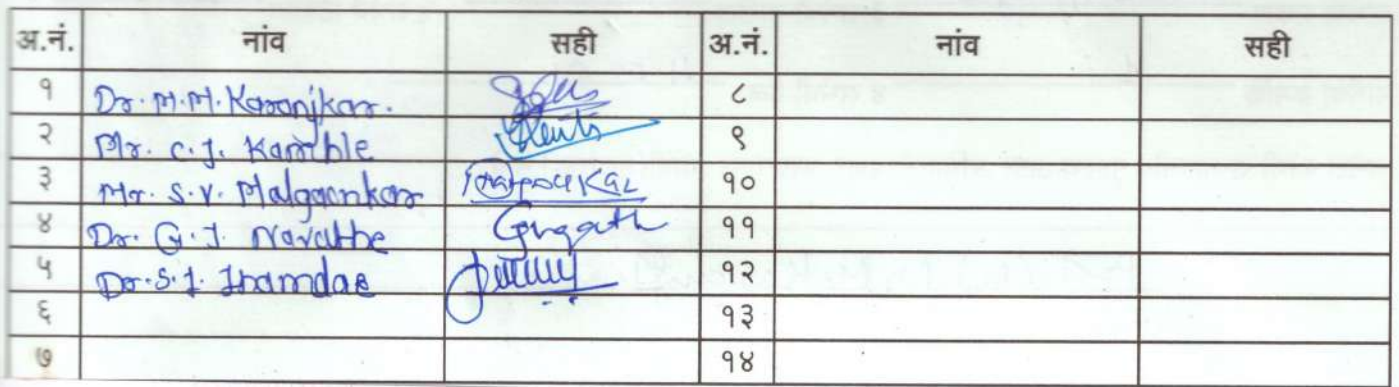 अ.नं. नांव सही अ.नं. नांव सही
१ Dr. M.M. Karanjkar. ८
२ Mr. C.J. Kamble ९
३ Mr. S.V. Malgaonkar १०
४ Dr. G.J. Navathe ११
५ Dr. S.J. Inamdar १२
६ १३
७ १४